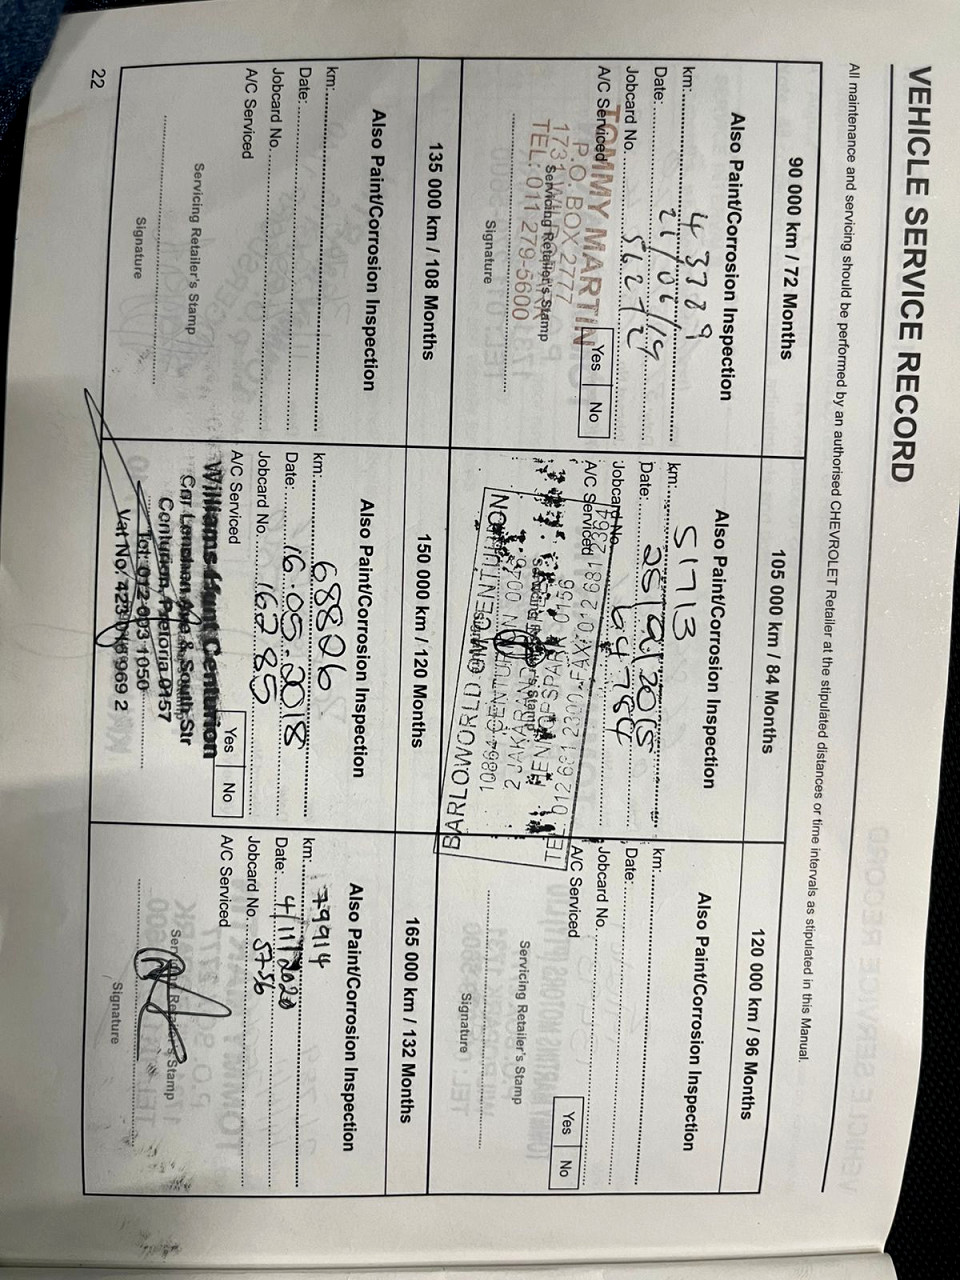 VEHICLE SERVICE RECORD
All maintenance and servicing should be performed by an authorised CHEVROLET Retailer at the stipulated distances or time intervals as stipulated in this Manual.
90 000 km / 72 Months
Also Paint/Corrosion Inspection
km: 43389
Date: 21/06/14
Jobcard No. 562727
A/C Serviced Yes No
TOMMY MARTIN
P.O. BOX 2777
1731
TEL: 011 279-5600
Servicing Retailer's Stamp
Signature
105 000 km / 84 Months
Also Paint/Corrosion Inspection
km: 51713
Date: 25/9/2015
Jobcard No. 64784
A/C Serviced
BARLOWORLD GM CENTURION
Servicing Retailer's Stamp
Signature
120 000 km / 96 Months
Also Paint/Corrosion Inspection
km:
Date:
Jobcard No.
A/C Serviced Yes No
Servicing Retailer's Stamp
Signature
135 000 km / 108 Months
Also Paint/Corrosion Inspection
km:
Date:
Jobcard No.
A/C Serviced
Servicing Retailer's Stamp
Signature
150 000 km / 120 Months
Also Paint/Corrosion Inspection
km: 68826
Date: 16.05.2018
Jobcard No. 16285
A/C Serviced Yes No
Williams Hunt Centurion
Cnr Lenchen Ave & South Str
Centurion, Pretoria 0157
Tel: 012 003 1050
Vat No.
165 000 km / 132 Months
Also Paint/Corrosion Inspection
km: 79914
Date: 4/11/2020
Jobcard No. 5756
A/C Serviced
Servicing Retailer's Stamp
Signature
22